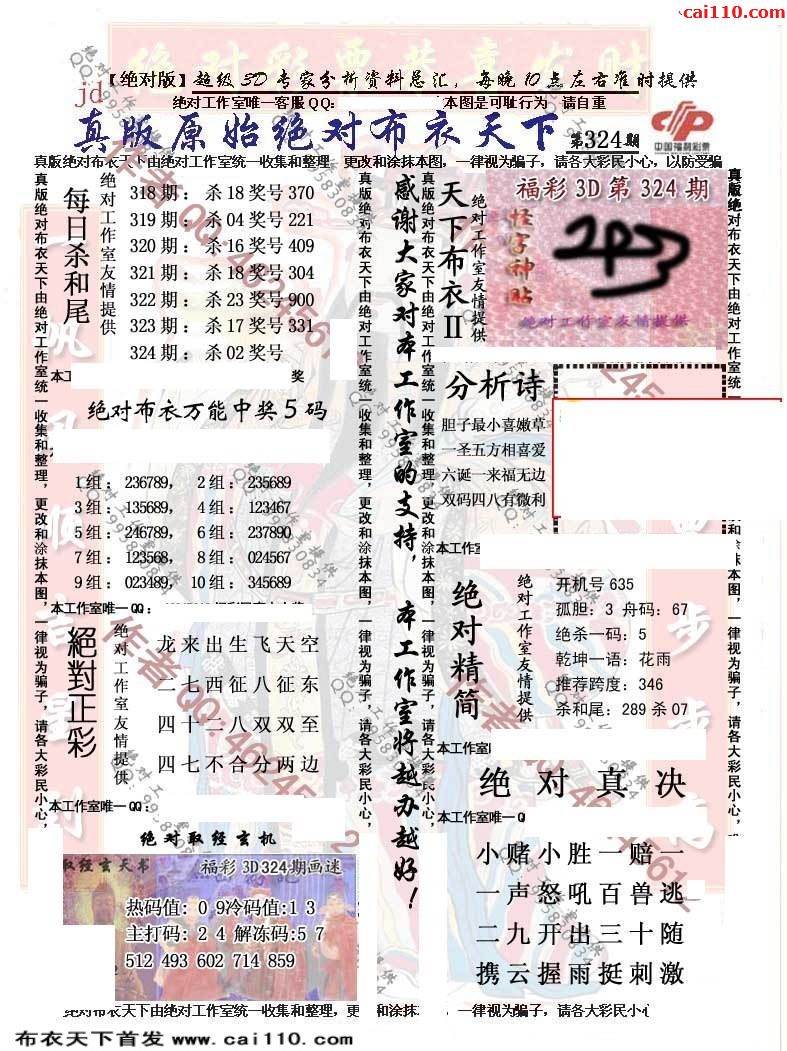 cai110.com
【绝对版】超级3D专家分析资料总汇，每晚10点左右准时提供
jd
绝对工作室唯一客服QQ： 本图是可耻行为 请自重
真版原始绝对布衣天下 第324期
中国福利彩票
真版绝对布衣天下由绝对工作室统一收集和整理，更改和涂抹本图，一律视为骗子，请各大彩民小心，以防受骗
每日杀和尾
绝对工作室友情提供
318期：杀18奖号370
319期：杀04奖号221
320期：杀16奖号409
321期：杀18奖号304
322期：杀23奖号900
323期：杀17奖号331
324期：杀02奖号
奖
绝对布衣万能中奖5码
1组：236789， 2组：235689
3组：135689， 4组：123467
5组：246789， 6组：237890
7组：123568， 8组：024567
9组：023489， 10组：345689
本工作室唯一QQ：
絕對正彩
绝对工作室友情提供
龙来出生飞天空
二七西征八征东
四十二八双双至
四七不合分两边
本工作室唯一QQ：
绝对取经玄机
取经玄天书 福彩3D324期画迷
热码值：0 9冷码值:1 3
主打码：2 4 解冻码:5 7
512 493 602 714 859
真版绝对布衣天下由绝对工作室统一收集和整理，更改和涂抹本图，一律视为骗子，请各大彩民小心，
感谢大家对本工作室的支持，本工作室将越办越好！
天下布衣II
绝对工作室友情提供
福彩3D第324期
怪字神贴
绝对工作室友情提供
分析诗
胆子最小喜嫩草
一圣五方相喜爱
六诞一来福无边
双码四八有微利
本工作室
绝对精简
绝对工作室友情提供
开机号635
孤胆：3 舟码：67
绝杀一码：5
乾坤一语：花雨
推荐跨度：346
杀和尾：289杀07
本工作室
绝对真决
本工作室唯一Q
小赌小胜一赔一
一声怒吼百兽逃
二九开出三十随
携云握雨挺刺激
绝对布衣天下由绝对工作室统一收集和整理，更和涂抹本 ，一律视为骗子，请各大彩民小心
布衣天下首发 www.cai110.com